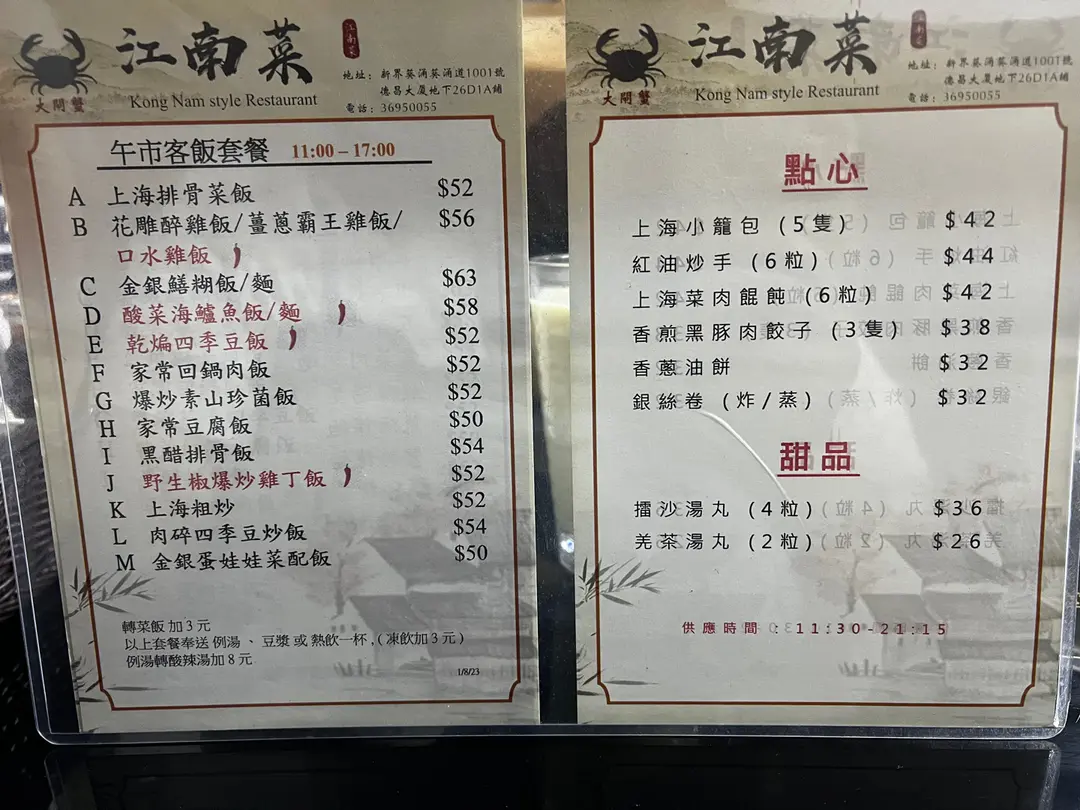 江南菜
江南菜
Kong Nam style Restaurant
大閘蟹
地址：新界葵涌葵涌道1001號
德昌大廈地下26D1A鋪
電話：36950055
午市客飯套餐 11:00 – 17:00
A 上海排骨菜飯 $52
B 花雕醉雞飯/薑蔥霸王雞飯/ $56
口水雞飯
C 金銀鱔糊飯/麵 $63
D 酸菜海鱸魚飯/麵 $58
E 乾煸四季豆飯 $52
F 家常回鍋肉飯 $52
G 爆炒素山珍菌飯 $52
H 家常豆腐飯 $50
I 黑醋排骨飯 $54
J 野生椒爆炒雞丁飯 $52
K 上海粗炒 $52
L 肉碎四季豆炒飯 $54
M 金銀蛋娃娃菜配飯 $50
轉菜飯 加 3 元
以上套餐奉送 例湯 、 豆漿 或 熱飲一杯 , ( 凍飲加 3 元 )
例湯轉酸辣湯加 8 元
1/8/23
江南菜
江南菜
Kong Nam style Restaurant
大閘蟹
地址：新界葵涌葵涌道1001號
德昌大廈地下26D1A鋪
電話：36950055
點心
上海小籠包 (5隻) $42
紅油炒手 (6粒) $44
上海菜肉餛飩 (6粒) $42
香煎黑豚肉餃子 (3隻) $38
香蔥油餅 $32
銀絲卷 (炸/蒸) $32
甜品
擂沙湯丸 (4粒) $36
羌茶湯丸 (2粒) $26
供應時間 : 11:30-21:15